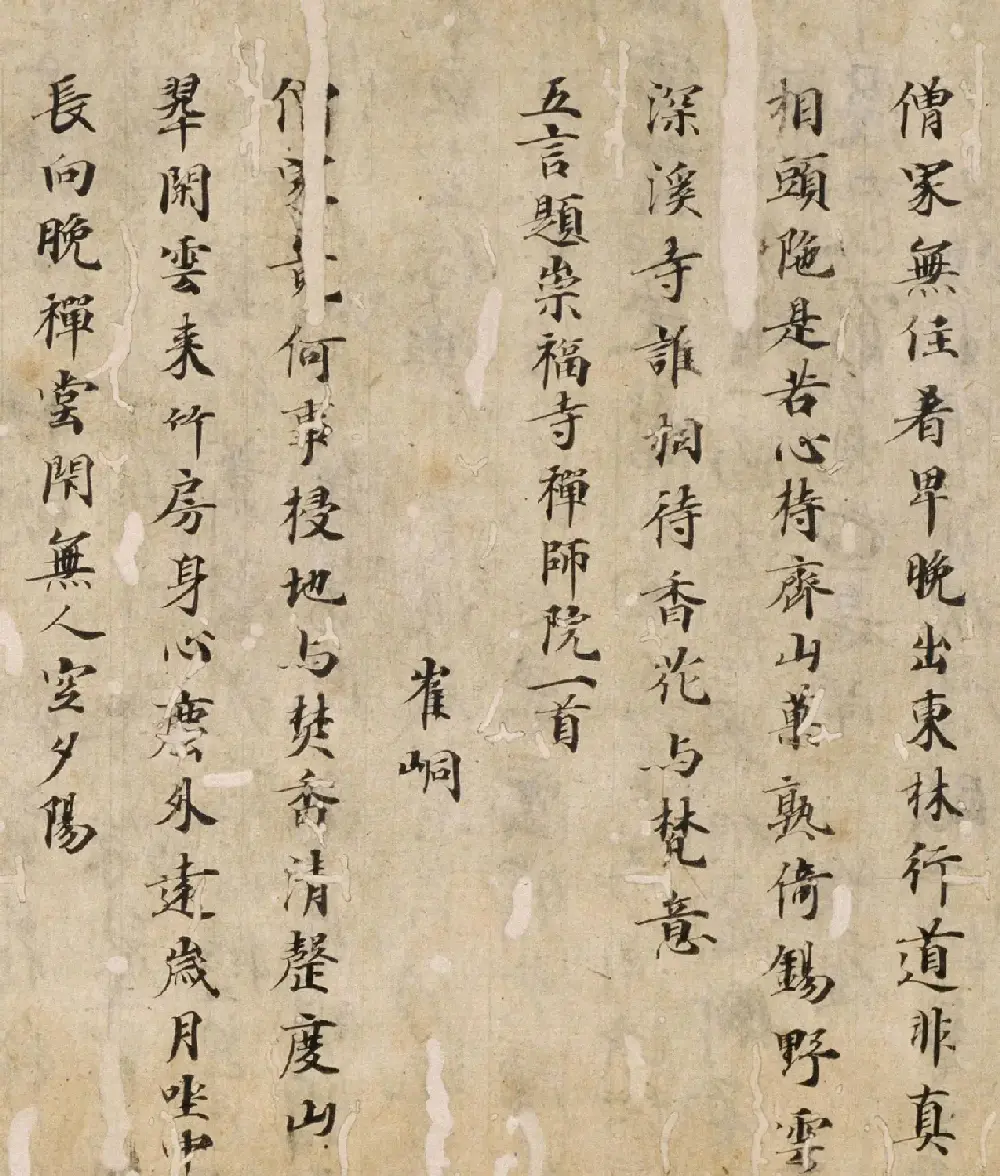 僧家無住着早晚出東林行道非真
相頭陁是若心持齊山菓熟倚錫野雲
深溪寺誰相待香花与梵意
五言題崇福寺禪師院一首
崔峒
僧家竟何事掃地与焚香清磬度山
翠閑雲来竹房身心塵外遠歲月坐中
長向晚禪堂閇無人空夕陽